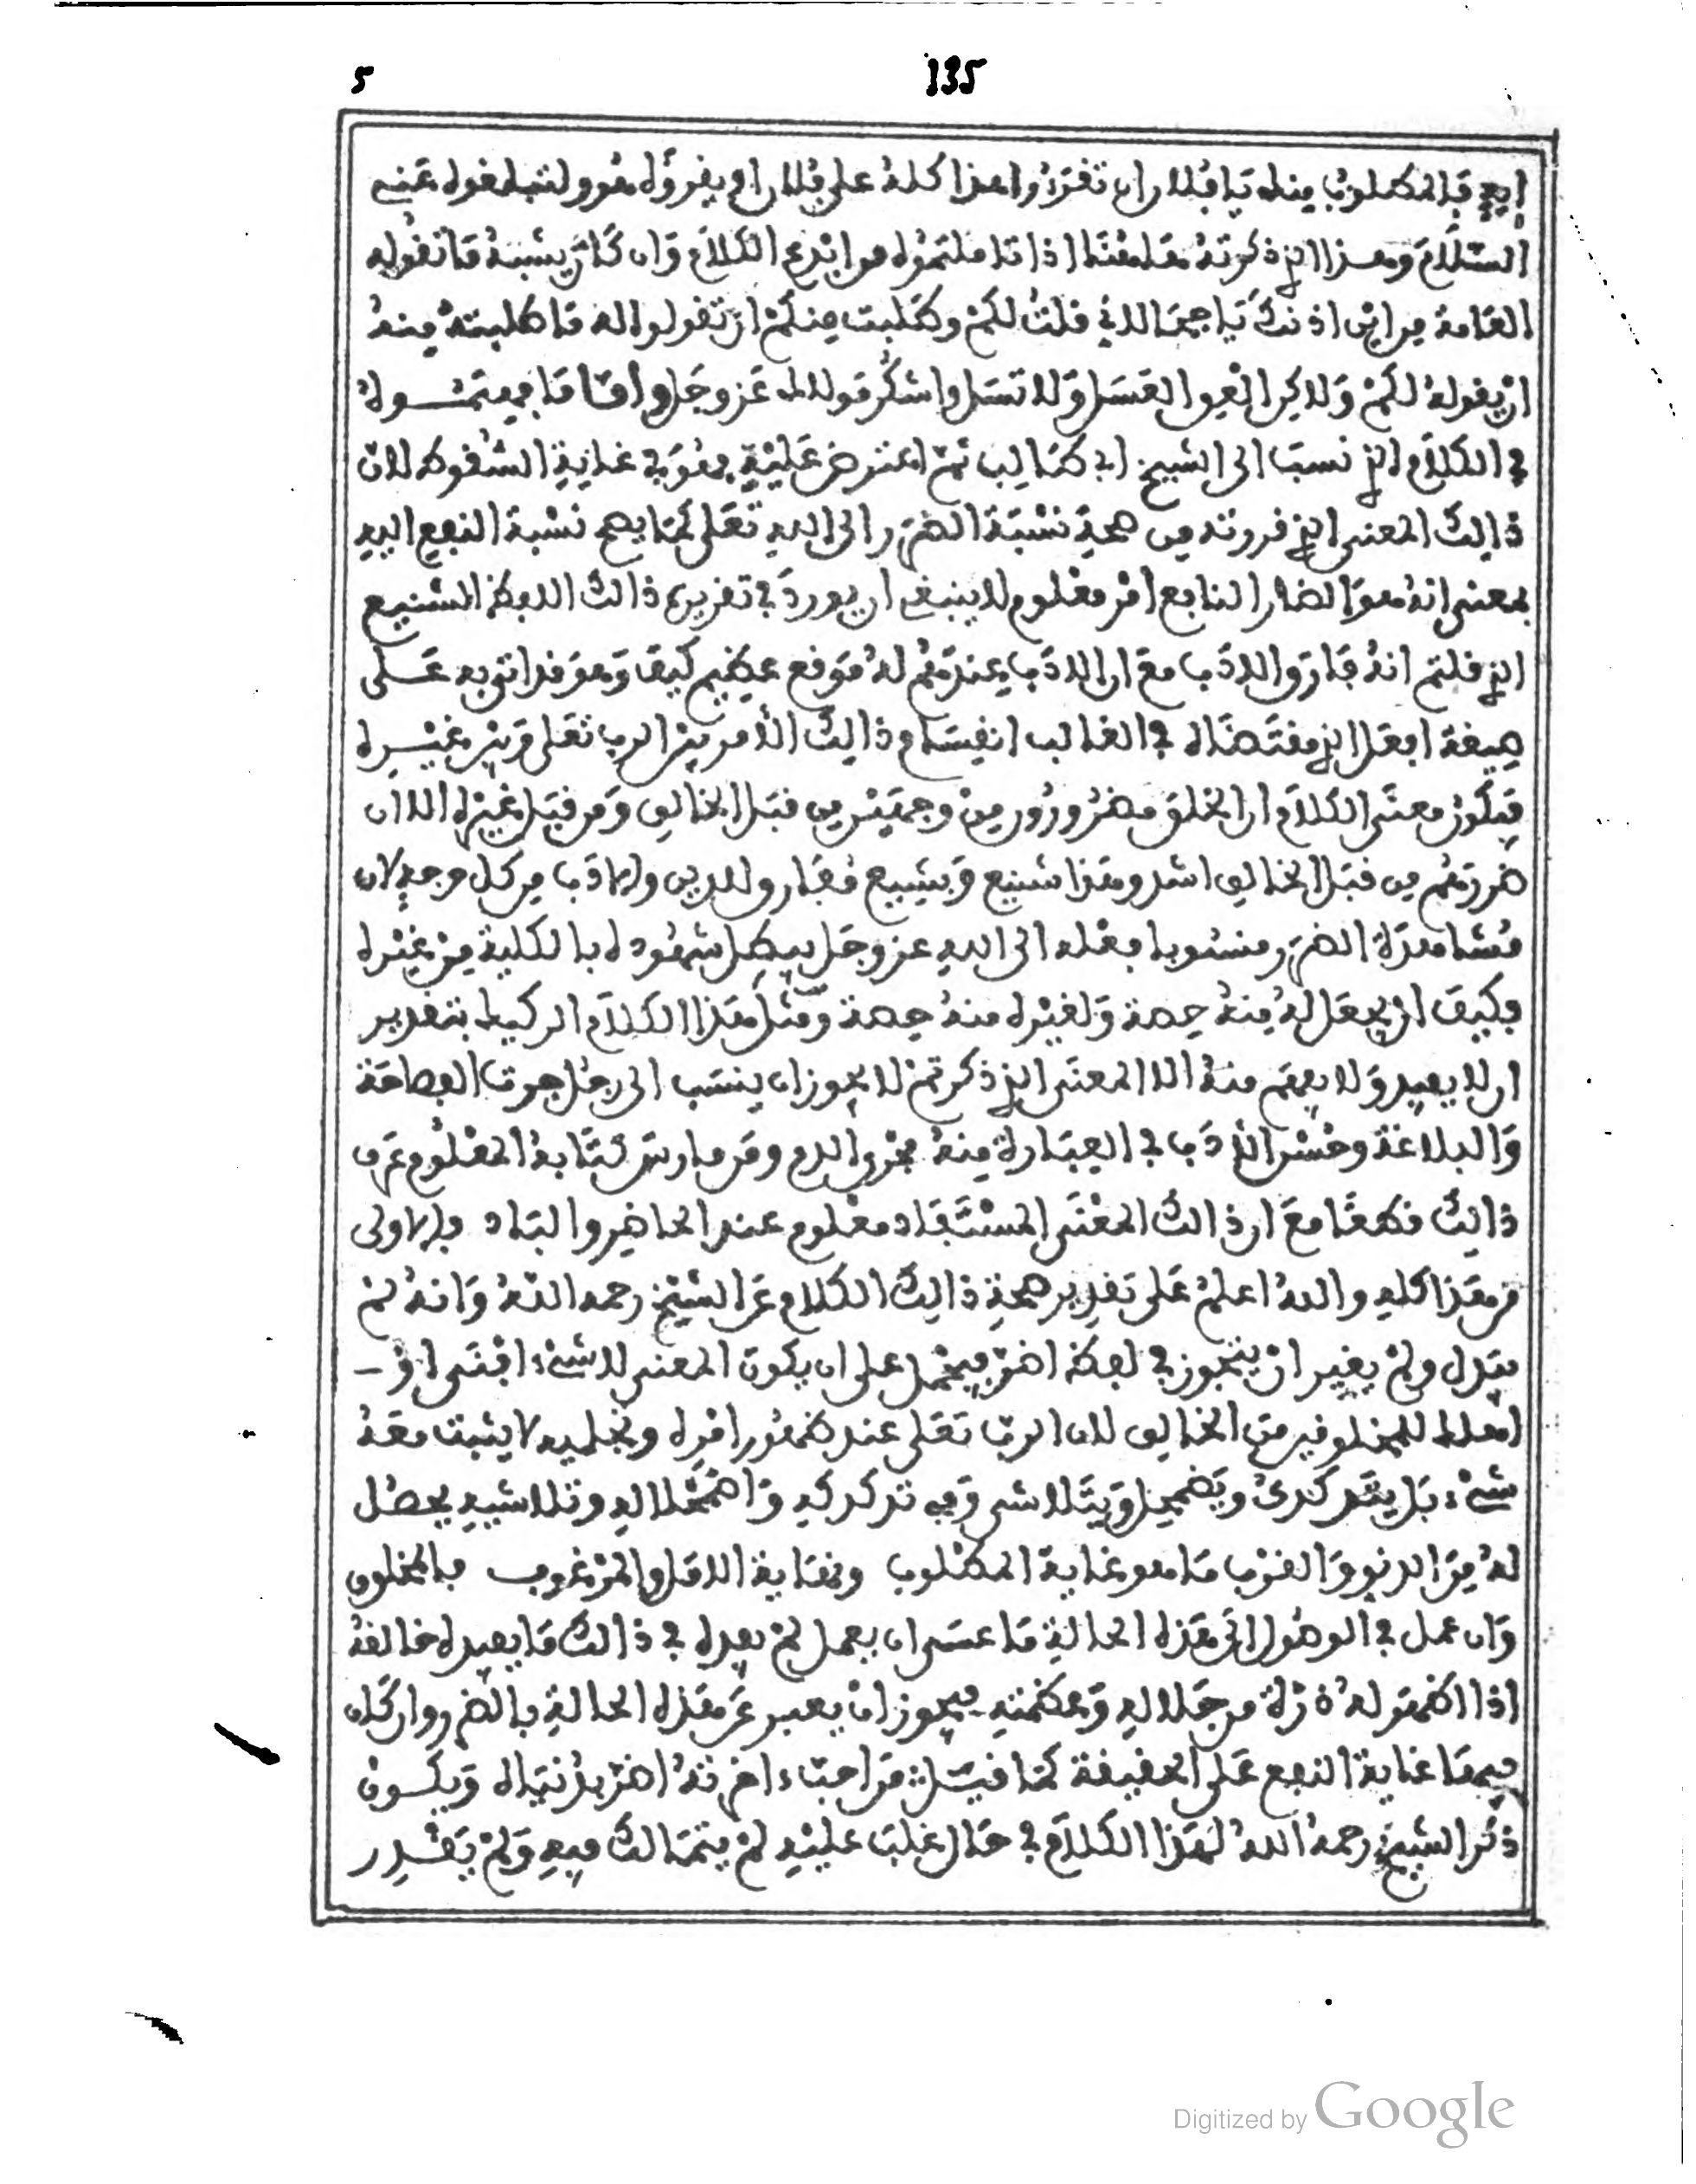 5 135
فالمطلوب منك يا فلان ان تقرءوا هذا كله على فلان
السلام وهذا الذي ذكرته هاهنا اذا تاملتموه هو ابدع الكلام وان كان يشبه ما تقوله
العامة من اين اذنك يا جحا لاني قلت لكم وطلبت منكم ان تقولوا له ما طلبته منه
ان يقوله لكم ولاكن العق العسل ولا تسل واشكر مولاك عز وجل واما ما فهمتموه
في الكلام الذي نسب الى الشيخ ابي طالب ثم اعترض عليه فهو في غاية السقوط لان
ذالك المعنى الذي قررته من صحة نسبة الضر الى الله تعلى كما يصح نسبة النفع اليه
بمعنى انه هو الضار النافع امر معلوم لا ينبغي ان يورد في تقريره ذالك اللفظ الشنيع
الذي قلتم انه فارق الادب مع ان الادب عندهم له موقع عظيم كيف وهو قد اتى به على
صيغة افعل الذي مقتضاه في الغالب انقسام ذالك الامر بين الرب تعلى وبين غيره
فيكون معنى الكلام ان الخلق مضرورون من وجهين من قبل الخالق ومن قبل غيره الا ان
ضررهم من قبل الخالق اشد وهذا شنيع وبشيع مفارق للدين والادب من كل وجه لان
مشاهدة الضر منسوبا فعله الى الله عز وجل يبطل شهوده بالكلية من غيره
فكيف ان يجعل له منه حصة ولغيره منه حصة ومثل هذا الكلام الركيك بتقدير
ان لا يفيد ولا يفهم منه الا المعنى الذي ذكرتم لا يجوز ان ينسب الى رجل جرت الفصاحة
والبلاغة وحسن الادب في العبارة منه مجرى الدم ومن مارس كتابه المعلوم عرف
ذالك قطعا مع ان ذالك المعنى المستفاد معلوم عند الحاضر والباد فالاولى
من هذا كله والله اعلم على تقدير صحة ذالك الكلام عن الشيخ رحمه الله وانه لم
يبدل ولم يغير ان يتجوز في لفظة اضر فيحمل على ان يكون المعنى لا شيء افنى او
اهلك للمخلوقين من الخالق لان الرب تعلى عند ظهور امره وتجليه لا يثبت معه
شيء بل يتدكدك ويضمحل ويتلاشى وفي تدكدكه واضمحلاله وتلاشيه يحصل
له من الدنو والقرب ما هو غاية المطلوب ونهاية الامل والمرغوب فالمخلوق
وان عمل في الوصول الى هذه الحالة ما عسى ان يعمل لم يفده في ذالك ما يفيده خالقه
اذا اظهر له ذرة من جلاله وعظمته فيجوز ان يعبر عن هذه الحالة بالضر وان كان
فيها غاية النفع على الحقيقة كما قيل من احب اخرته اضر بدنياه ويكون
ذكر الشيخ رحمه الله لهذا الكلام في حال غلبت عليه لم يتمالك فيه ولم يقدر
Digitized by Google